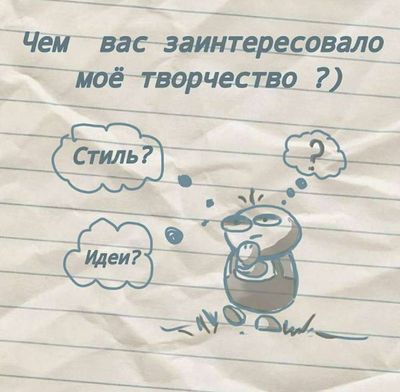 Чем вас заинтересовало
моё творчество ?)
Стиль?
?
Идеи?